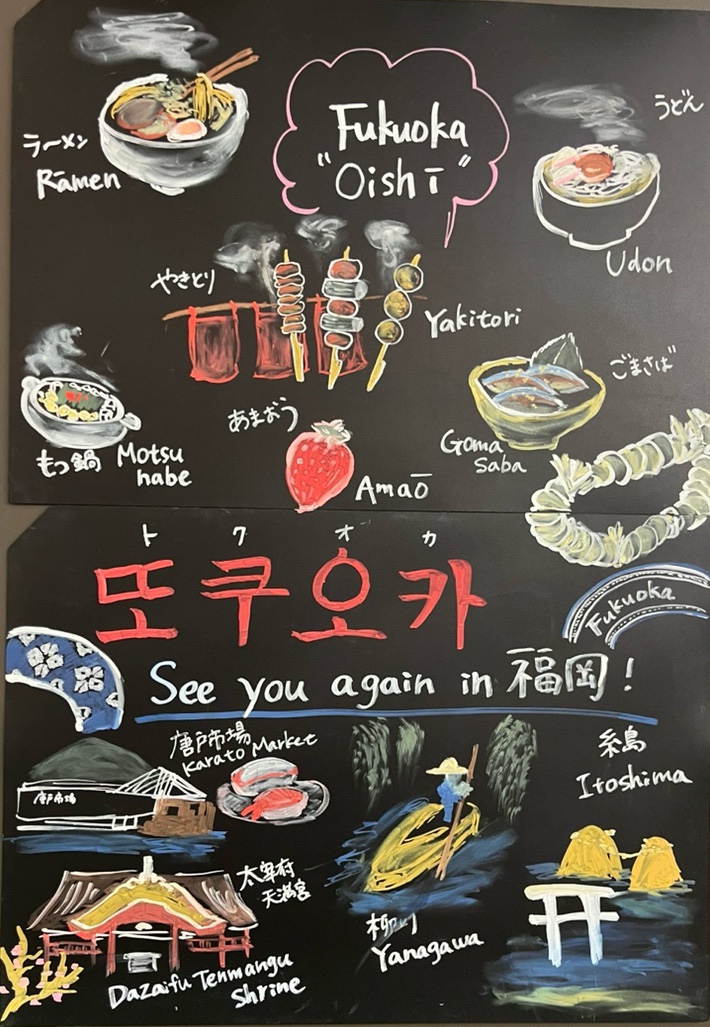 ラーメン
Rāmen
Fukuoka
"Oishī"
うどん
Udon
やきとり
Yakitori
もつ鍋 Motsu
nabe
あまおう
Amaō
ごまさば
Goma
Saba
トクオカ
또쿠오카
Fukuoka
See you again in 福岡!
唐戸市場
Karato Market
唐戸市場
糸島
Itoshima
太宰府
天満宮
Dazaifu Tenmangu
Shrine
柳川
Yanagawa